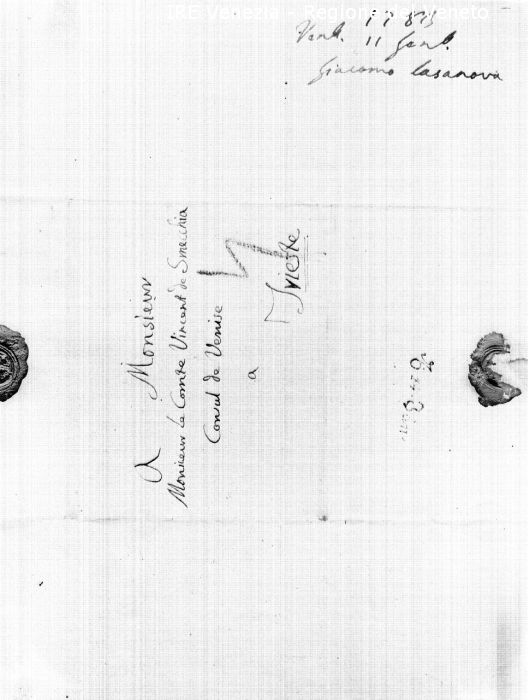 IRE Venezia - Regione del Veneto
11
Giacomo Casanova
A Monsieur
Monsieur Le Comte Vincent de Smecchia
Consul de Venise
a
Trieste